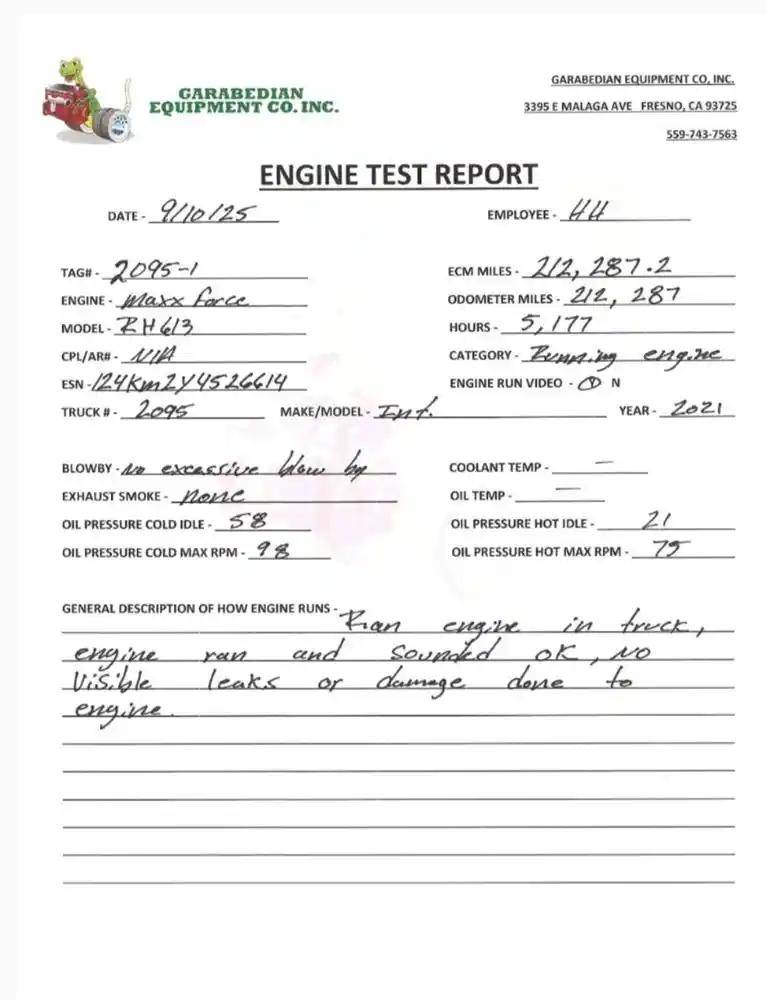 GARABEDIAN
EQUIPMENT CO. INC.
GARABEDIAN EQUIPMENT CO, INC.
3395 E MALAGA AVE FRESNO, CA 93725
559-743-7563
ENGINE TEST REPORT
DATE - 9/10/25 EMPLOYEE - HH
TAG# - 2095-1 ECM MILES - 212,287.2
ENGINE - Maxx force ODOMETER MILES - 212, 287
MODEL - RH613 HOURS - 5,177
CPL/AR# - N/A CATEGORY - Running engine
ESN - 124KM2Y4526614 ENGINE RUN VIDEO - Y N
TRUCK # - 2095 MAKE/MODEL - Int. YEAR - 2021
BLOWBY - No excessive blow by COOLANT TEMP - —
EXHAUST SMOKE - none OIL TEMP - —
OIL PRESSURE COLD IDLE - 58 OIL PRESSURE HOT IDLE - 21
OIL PRESSURE COLD MAX RPM - 98 OIL PRESSURE HOT MAX RPM - 75
GENERAL DESCRIPTION OF HOW ENGINE RUNS - Ran engine in truck,
engine ran and sounded OK, NO
Visible leaks or damage done to
engine.